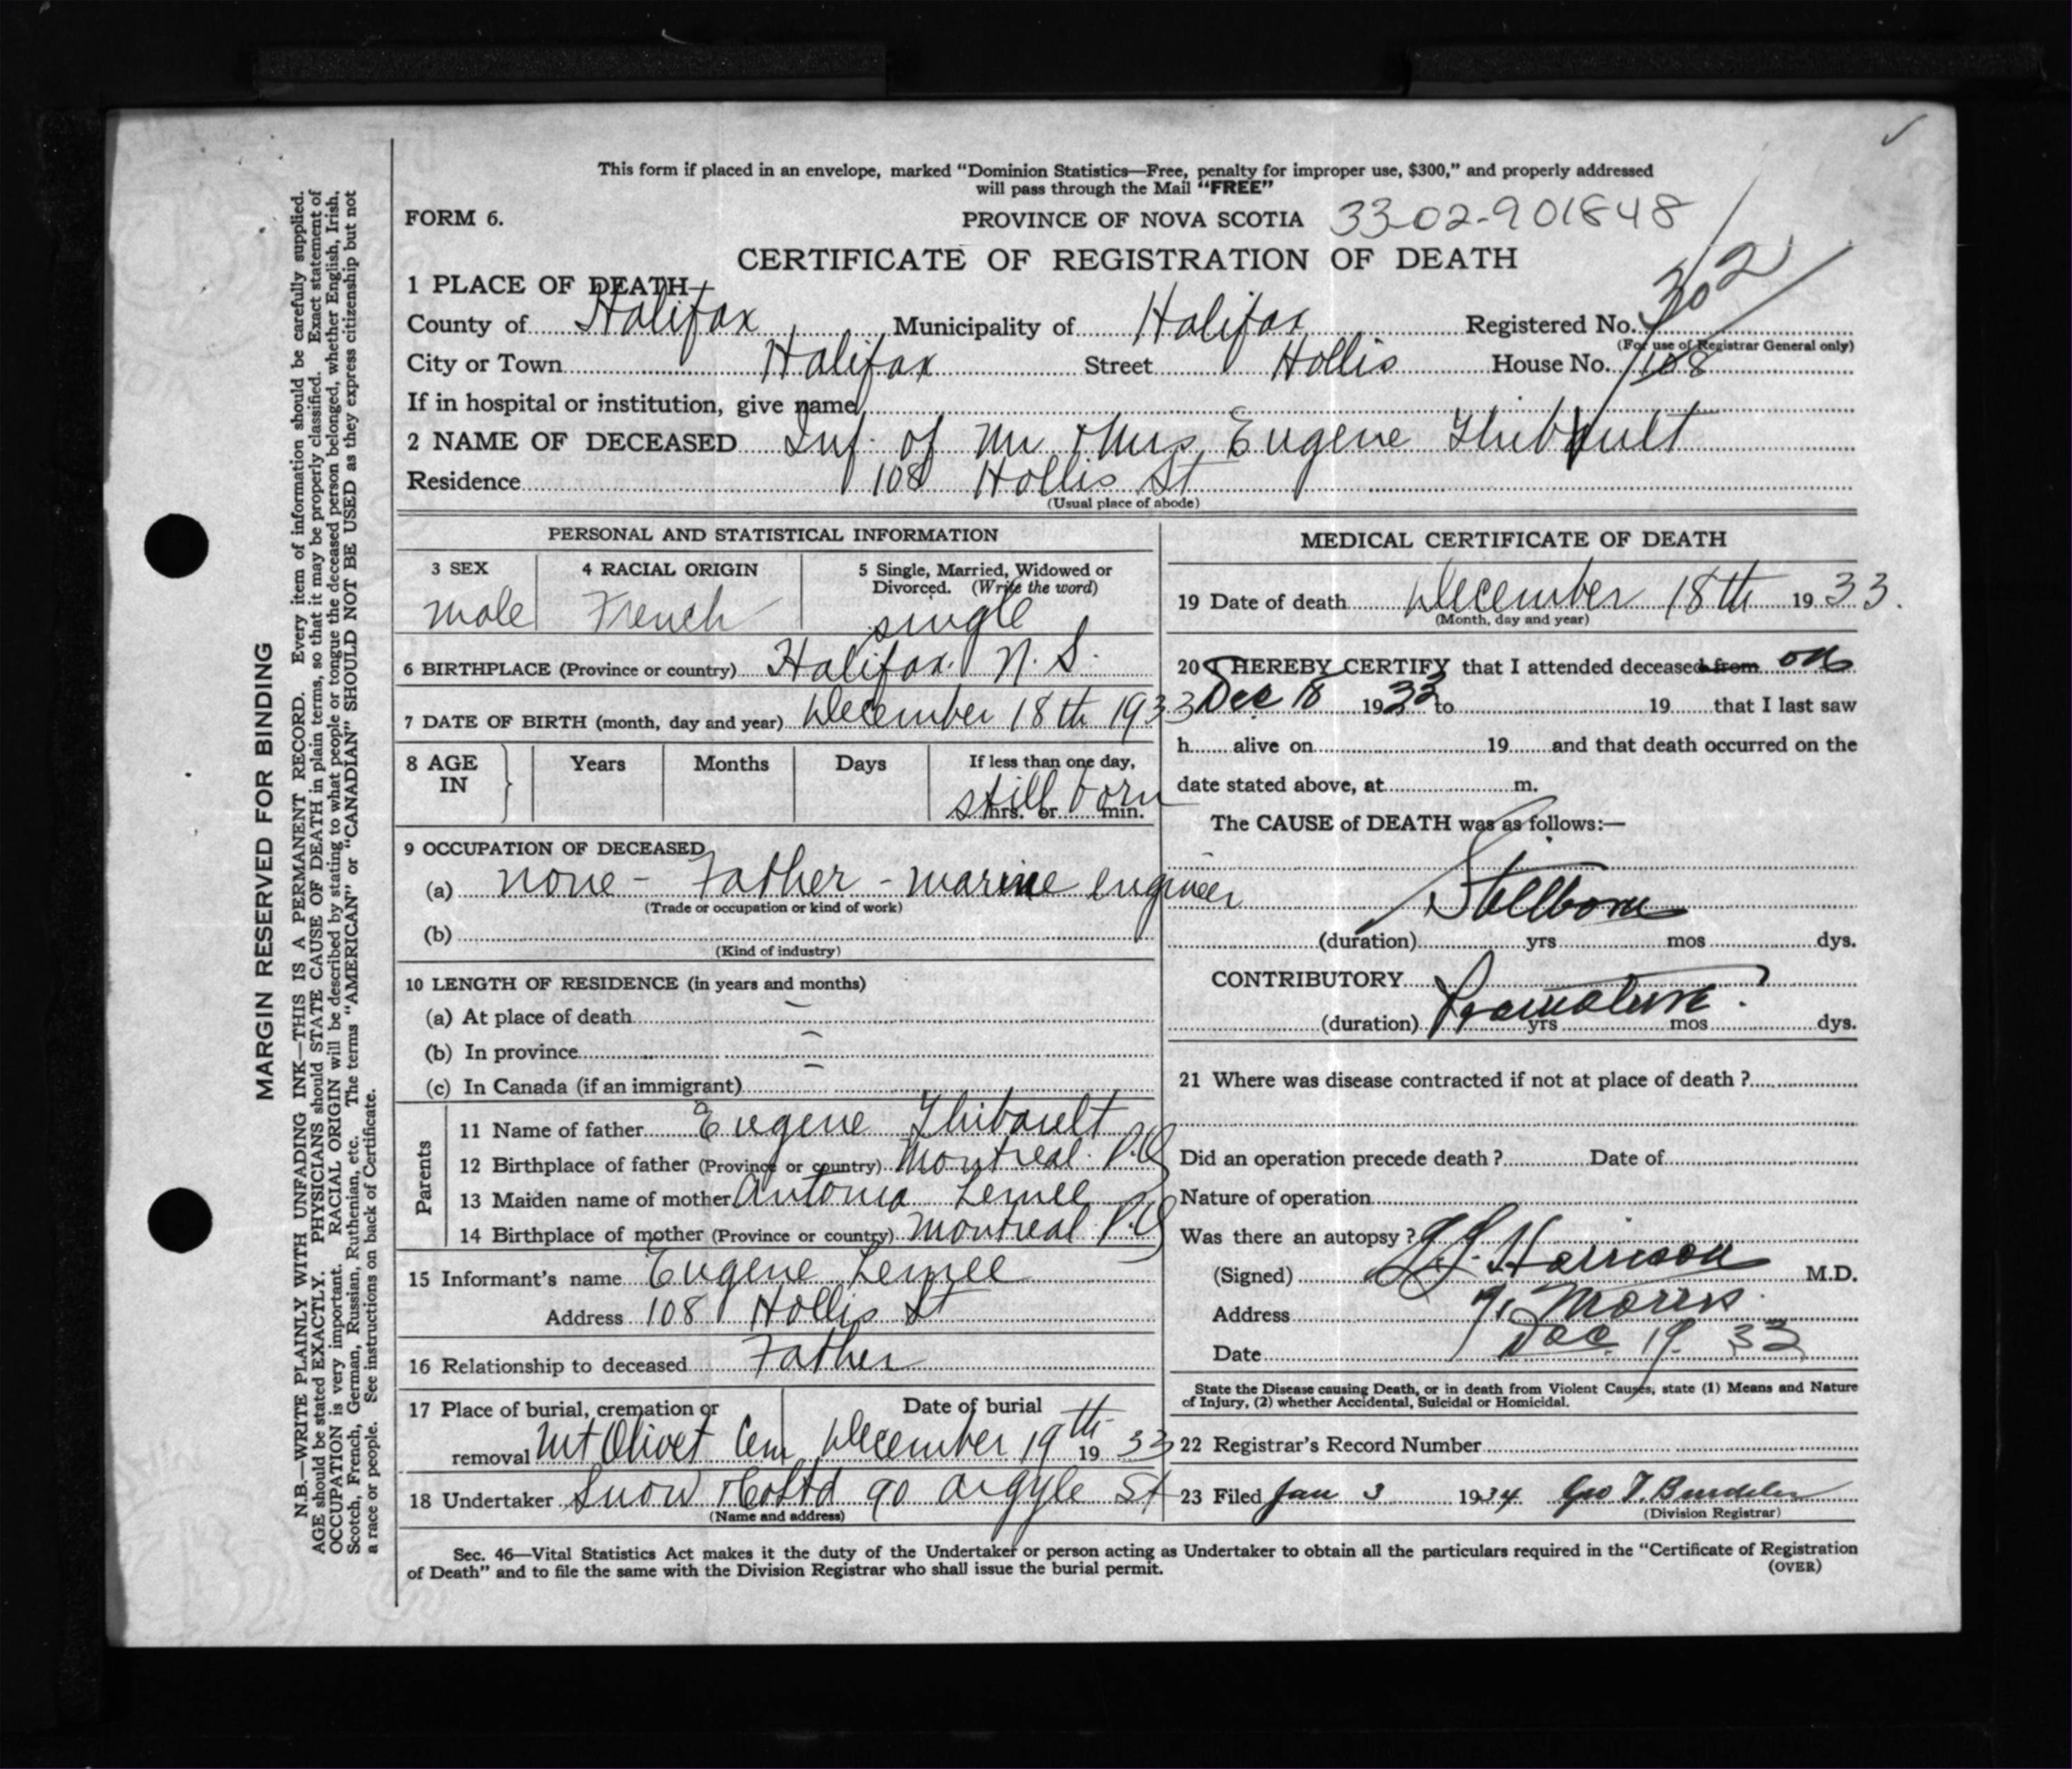 This form if placed in an envelope, marked "Dominion Statistics—Free, penalty for improper use, $300," and properly addressed
will pass through the Mail "FREE"
FORM 6.
PROVINCE OF NOVA SCOTIA 33-02-901848
CERTIFICATE OF REGISTRATION OF DEATH
1 PLACE OF DEATH—
County of Halifax, Municipality of Halifax Registered No. 302
(For use of Registrar General only)
City or Town Halifax Street Hollis House No. 108
If in hospital or institution, give name
2 NAME OF DECEASED Inf. of Mr & Mrs Eugene Thibault
Residence 108 Hollis St
(Usual place of abode)
PERSONAL AND STATISTICAL INFORMATION
3 SEX 4 RACIAL ORIGIN 5 Single, Married, Widowed or
Divorced. (Write the word)
male French single
6 BIRTHPLACE (Province or country) Halifax. N.S.
7 DATE OF BIRTH (month, day and year) December 18th 1933
8 AGE IN Years Months Days If less than one day,
still born
hrs. or min.
9 OCCUPATION OF DECEASED
(a) none - Father - marine engineer
(Trade or occupation or kind of work)
(b)
(Kind of industry)
10 LENGTH OF RESIDENCE (in years and months)
(a) At place of death –
(b) In province –
(c) In Canada (if an immigrant) –
Parents
11 Name of father Eugene Thibault
12 Birthplace of father (Province or country) Montreal. P.Q
13 Maiden name of mother Antonia
14 Birthplace of mother (Province or country) Montreal P.Q
15 Informant's name Eugene
Address 108 Hollis St
16 Relationship to deceased Father
17 Place of burial, cremation or Date of burial
removal Mt Olivet Cem December 19th 1933
18 Undertaker Snow & Co Ltd 90 Argyle St
(Name and address)
MEDICAL CERTIFICATE OF DEATH
19 Date of death December 18th 1933.
(Month, day and year)
20 I HEREBY CERTIFY that I attended deceased from on
Dec 18 1933 to 19 that I last saw
h alive on 19 and that death occurred on the
date stated above, at m.
The CAUSE of DEATH was as follows:—
Stillborn
(duration) yrs mos dys.
CONTRIBUTORY Premature ?
(duration) yrs mos dys.
21 Where was disease contracted if not at place of death ?
Did an operation precede death ? Date of
Nature of operation
Was there an autopsy ?
(Signed) Harrison M.D.
Address Morris
Date Dec. 19. 33
State the Disease causing Death, or in death from Violent Causes, state (1) Means and Nature
of Injury, (2) whether Accidental, Suicidal or Homicidal.
22 Registrar's Record Number
23 Filed Jan 3 1934 Geo T.
(Division Registrar)
Sec. 46—Vital Statistics Act makes it the duty of the Undertaker or person acting as Undertaker to obtain all the particulars required in the "Certificate of Registration
of Death" and to file the same with the Division Registrar who shall issue the burial permit.
(OVER)
MARGIN RESERVED FOR BINDING
N.B.—WRITE PLAINLY WITH UNFADING INK—THIS IS A PERMANENT RECORD. Every item of information should be carefully supplied.
AGE should be stated EXACTLY. PHYSICIANS should STATE CAUSE OF DEATH in plain terms, so that it may be properly classified. Exact statement of
OCCUPATION is very important. RACIAL ORIGIN will be described by stating to what people or tongue the deceased person belonged, whether English, Irish,
Scotch, French, German, Russian, Ruthenian, etc. The terms "AMERICAN" or "CANADIAN" SHOULD NOT BE USED as they express citizenship but not
a race or people. See instructions on back of Certificate.